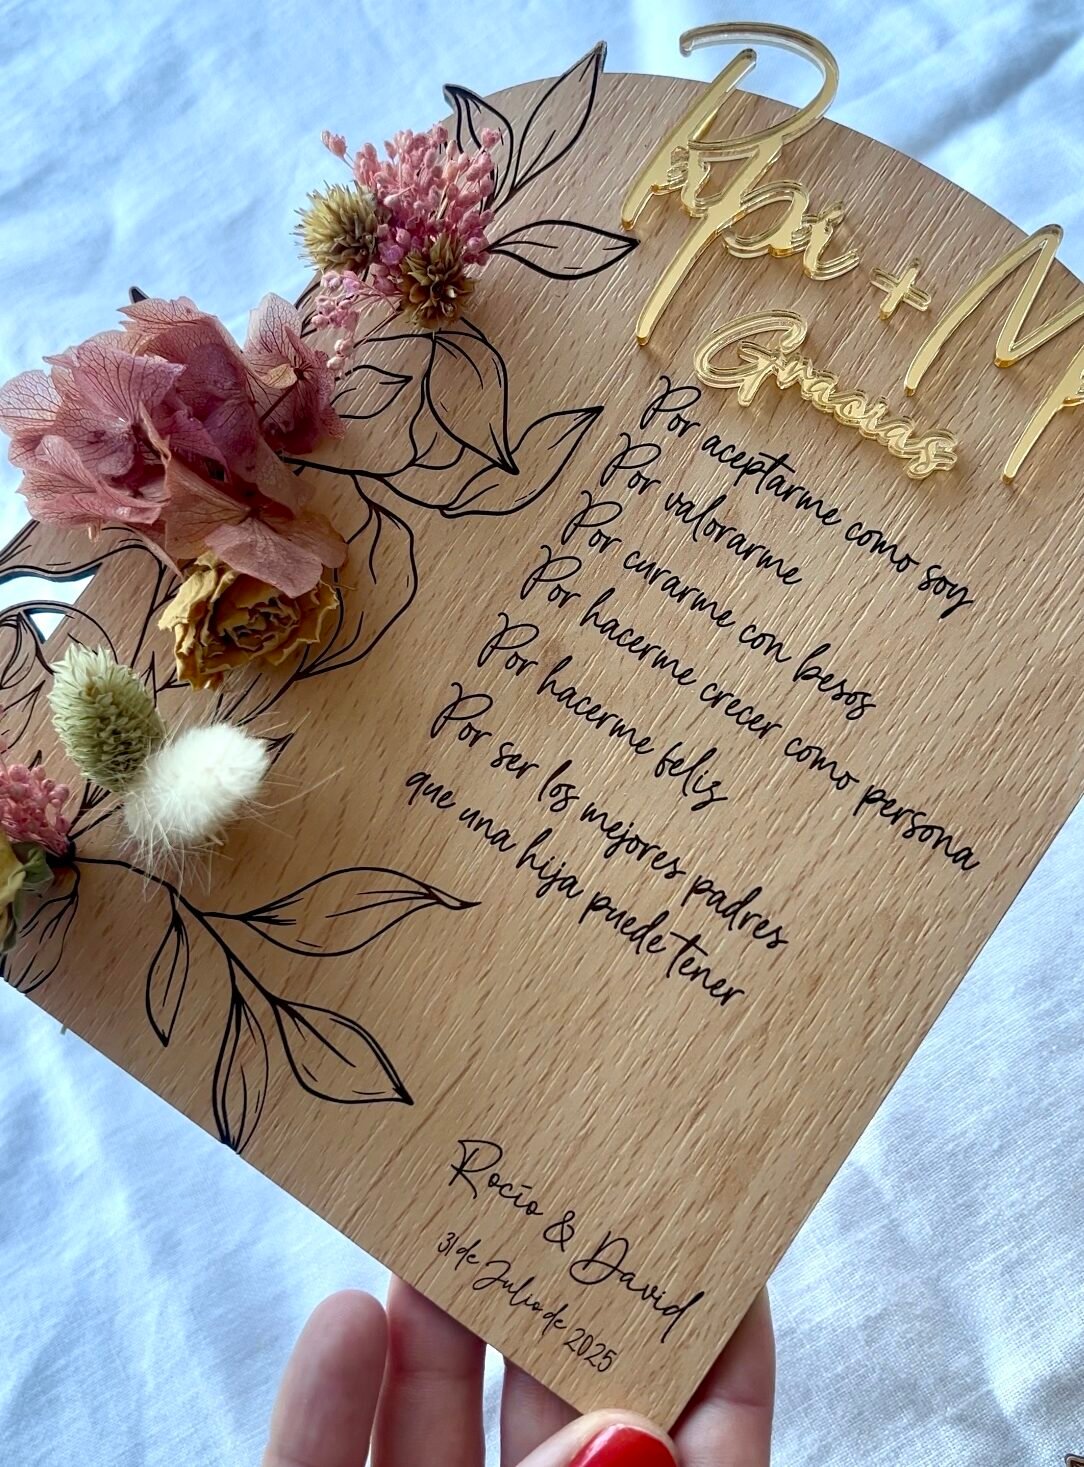 Papi +
Gracias
Por aceptarme como soy
Por valorarme
Por curarme con besos
Por hacerme crecer como persona
Por hacerme feliz
Por ser los mejores padres
que una hija puede tener
Rocío & David
31 de Julio de 2025